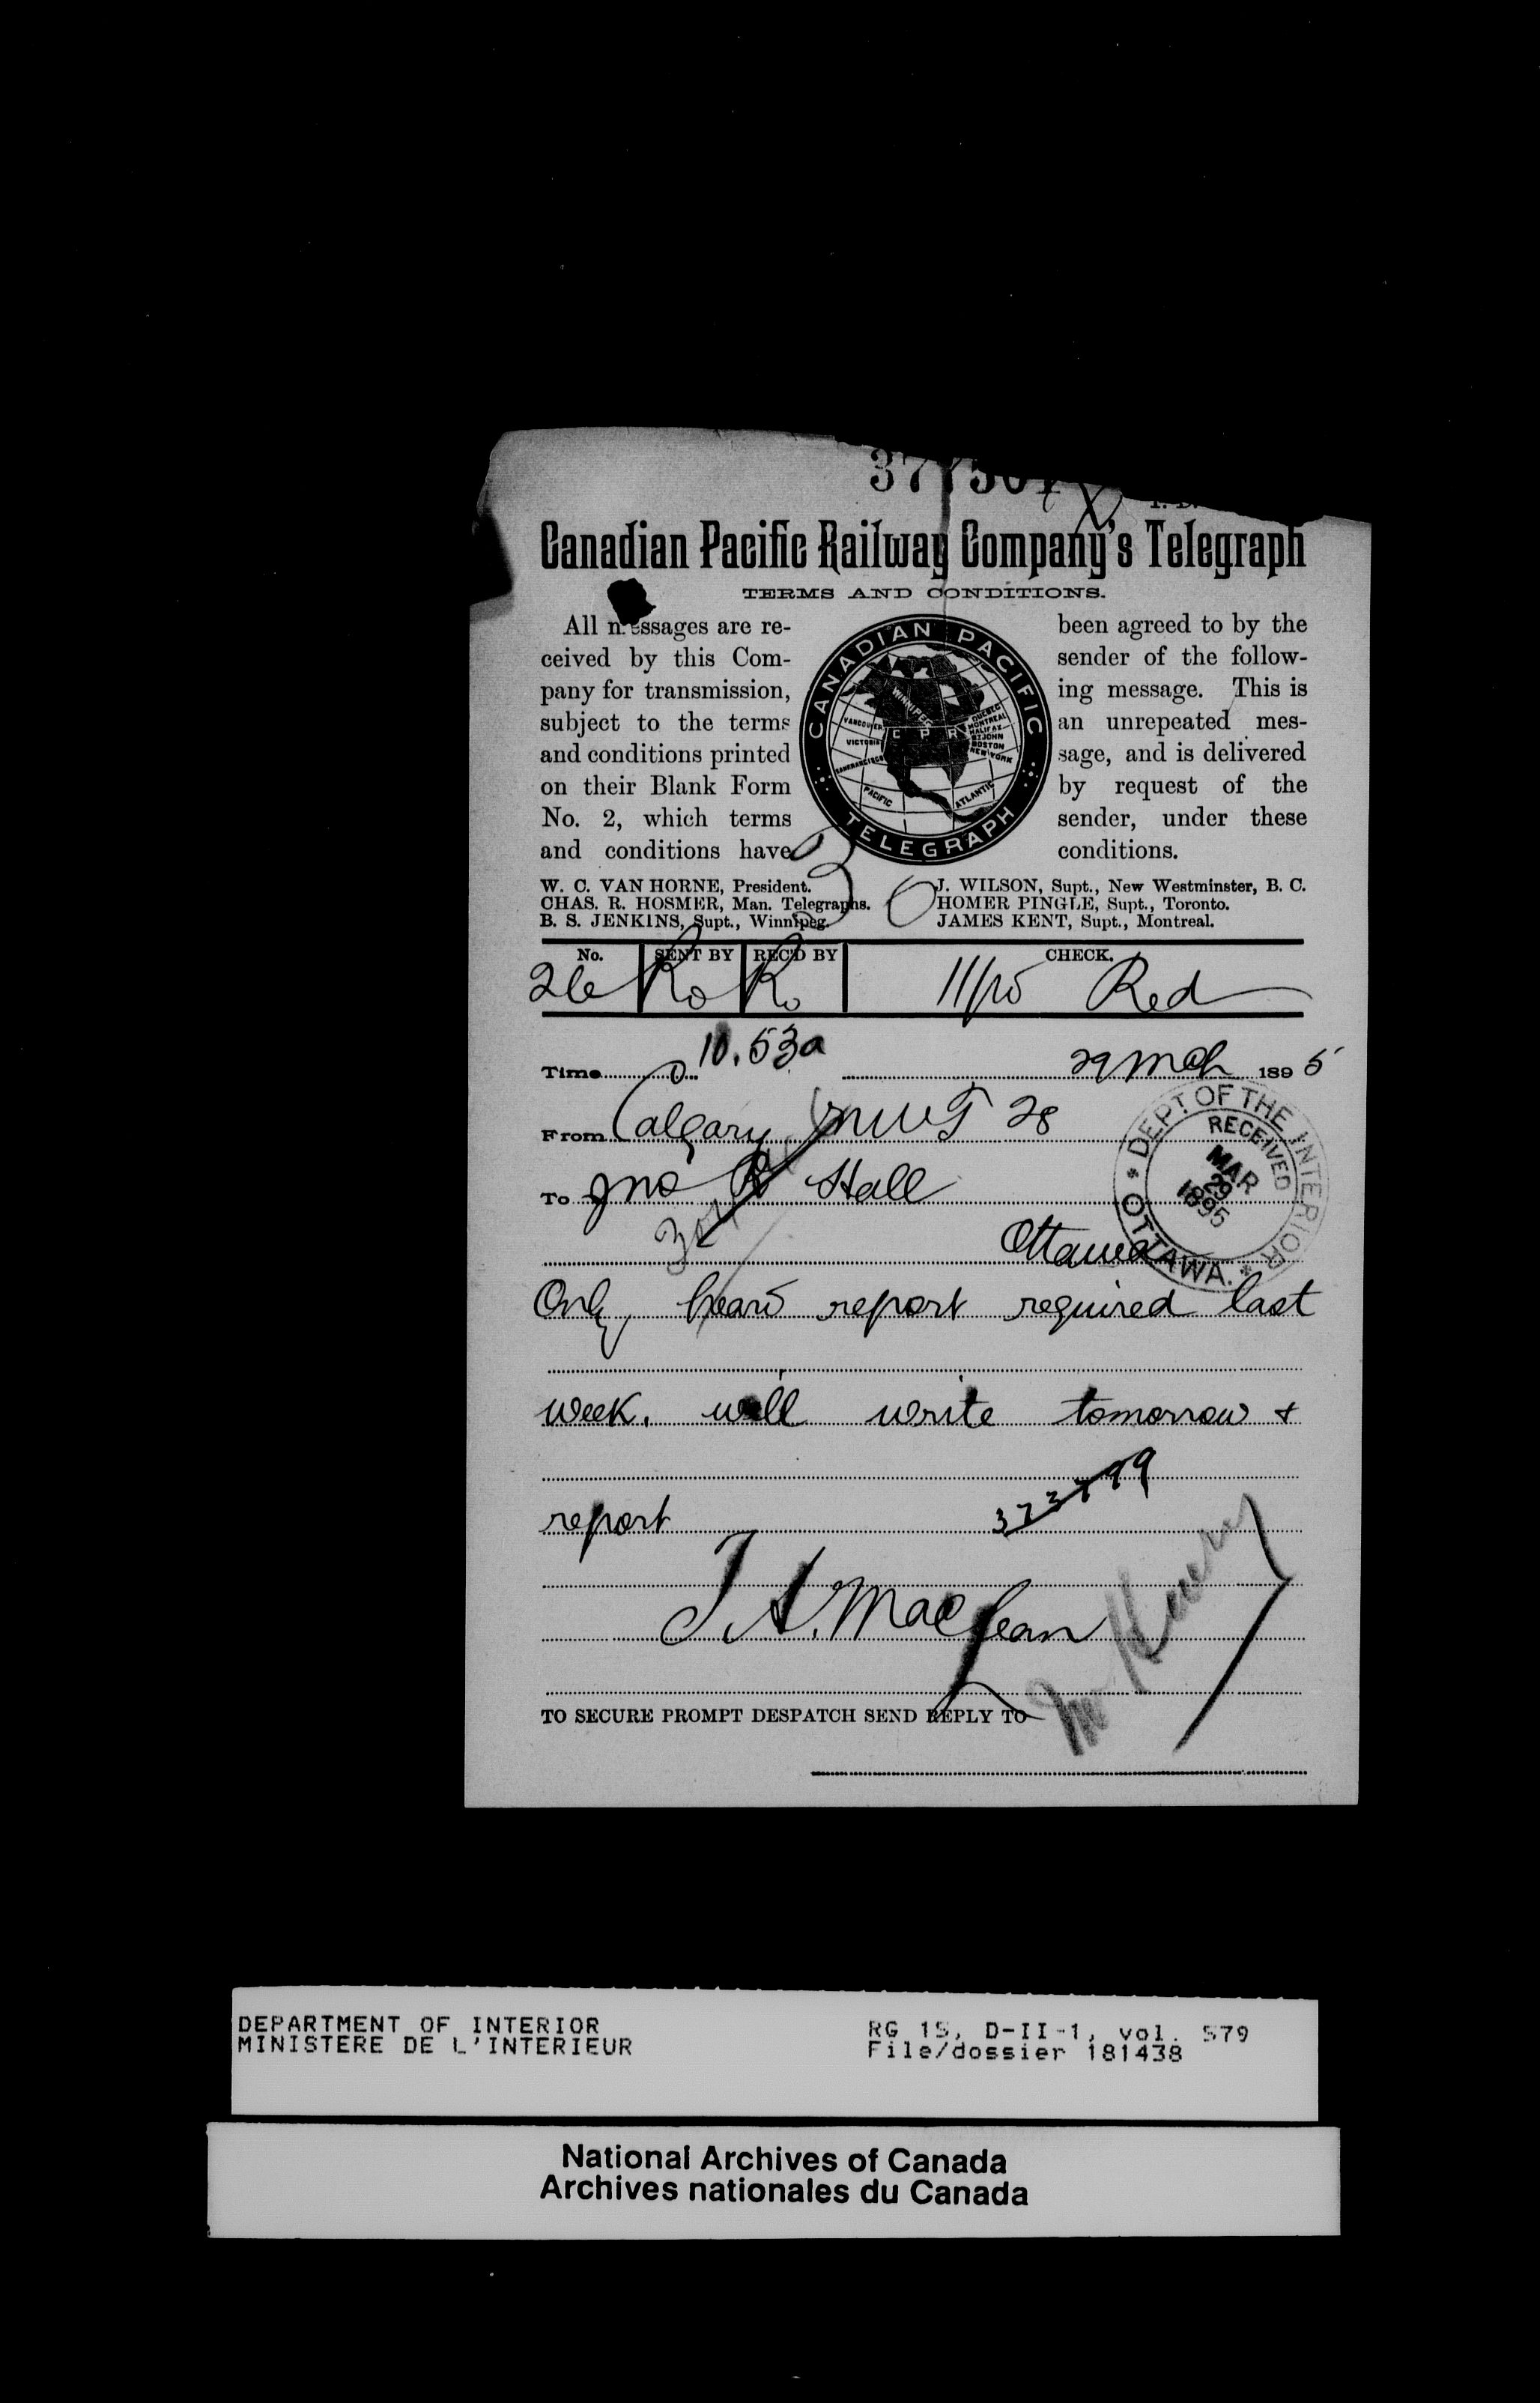 Canadian Pacific Railway Company's Telegraph
TERMS AND CONDITIONS.
All messages are re-
ceived by this Com-
pany for transmission,
subject to the terms
and conditions printed
on their Blank Form
No. 2, which terms
and conditions have
CANADIAN PACIFIC
TELEGRAPH
WINNIPEG
VANCOUVER
VICTORIA
SANFRANCISCO
C P R
QUEBEC
MONTREAL
HALIFAX
ST JOHN
BOSTON
NEW YORK
PACIFIC
ATLANTIC
been agreed to by the
sender of the follow-
ing message. This is
an unrepeated mes-
sage, and is delivered
by request of the
sender, under these
conditions.
W. C. VAN HORNE, President.
CHAS. R. HOSMER, Man. Telegraphs.
B. S. JENKINS, Supt., Winnipeg.
J. WILSON, Supt., New Westminster, B. C.
HOMER PINGLE, Supt., Toronto.
JAMES KENT, Supt., Montreal.
No. SENT BY REC'D BY CHECK.
26 Ro Ro 11/15 Red
Time 10.53a 29 Mch 1895
From Calgary NWT 28
To Jno R Hall
Ottawa
DEPT. OF THE INTERIOR
RECEIVED
MAR
29
1895
OTTAWA.
Only heard report required last
week. will write tomorrow +
report
373799
T A. MacLean
TO SECURE PROMPT DESPATCH SEND REPLY TO
DEPARTMENT OF INTERIOR
MINISTERE DE L'INTERIEUR
RG 15, D-II-1, vol. 579
File/dossier 181438
National Archives of Canada
Archives nationales du Canada